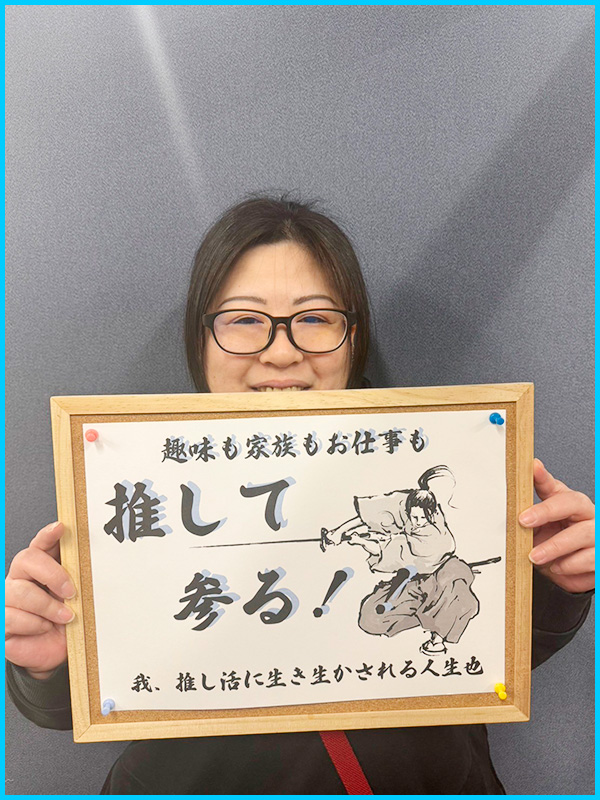 趣味も家族もお仕事も
推して
参る！！
我、推し活に生き生かされる人生也